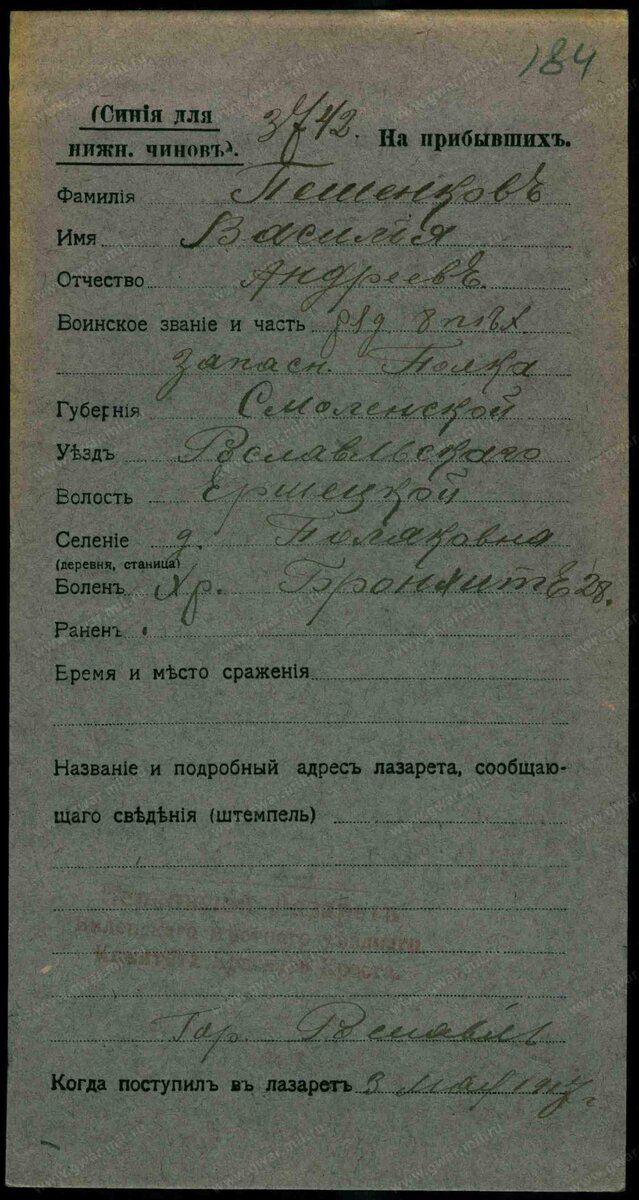 184
(Синія для
нижн. чиновъ).
3742. На прибывшихъ.
Фамилія Пешенковъ
Имя Василія
Отчество Андреевъ
Воинское званіе и часть ряд 8 пѣх
запасн. Полка
Губернія Смоленской
Уѣздъ Рославльскаго
Волость Ершецкой
Селеніе д.
(деревня, станица)
Боленъ Хр. Бронхитъ 28.
Раненъ
Время и мѣсто сраженія
Названіе и подробный адресъ лазарета, сообщаю-
щаго свѣдѣнія (штемпель)
Креста.
Гор. Рославль
Когда поступилъ въ лазаретъ 3 мая 1917 г.
www.gwar.mil.ru